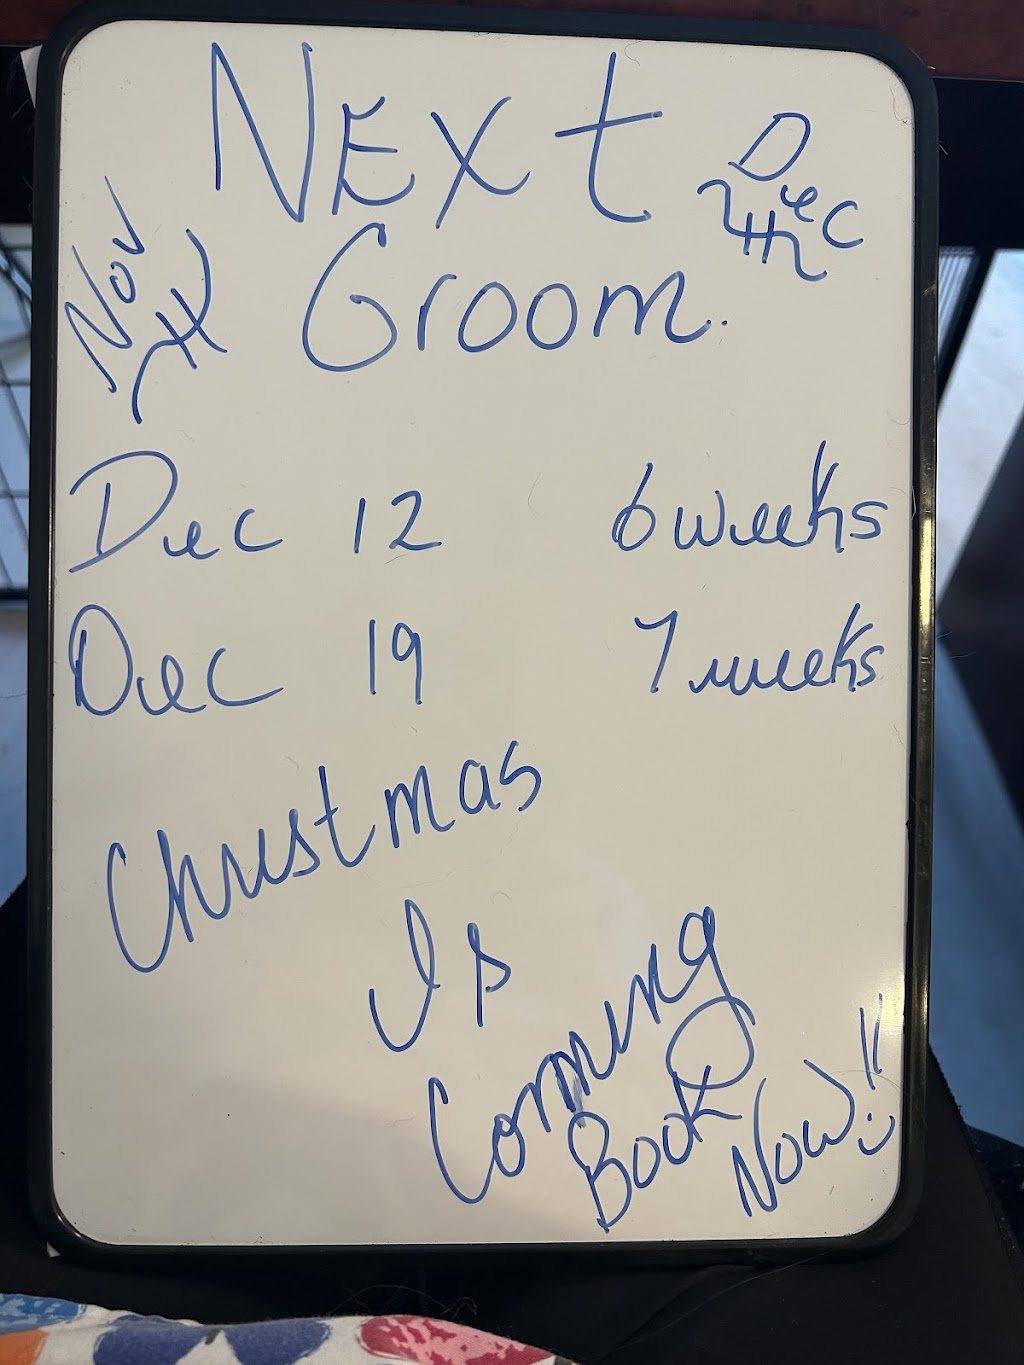 Next
Groom.
Nov
Dec
Dec 12 6 weeks
Dec 19 7 weeks
Christmas
Is
Comming
Book
Now!!